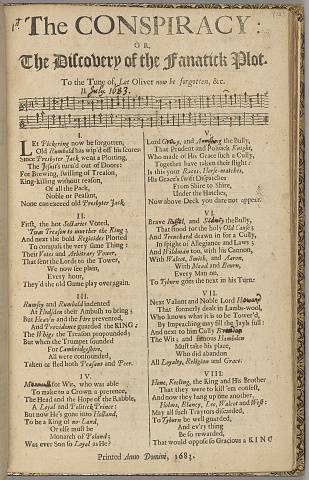 1st
The CONSPIRACY:
OR,
The Discovery of the Fanatick Plot.
To the Tune of, Let Oliver now be forgotten, &c.
11. July. 1683.
I.
LEt Pickering now be forgotten,
Old Rumbald has wip'd off his scores
Since Presbyter Jack went a Plotting,
The Jesuit's turn'd out of Doors;
For Brewing, swilling of Treason,
King-killing without reason,
Of all the Pack,
Noble or Peasant,
None can exceed old Presbyter Jack.
II.
First, the hot Sectaries Voted,
'Twas Treason to murther the King;
And next the bold Regicides Plotted
To compass the very same Thing:
Their Vates and Arbitrary Power,
That sent the Lord to the Tower,
We now see plain,
Every hour,
They'd the old Game play over again.
III.
Rumsey and Rumbald indented
At Hodsdon their Ambush to bring;
But Heav'n and the Fire prevented,
And Providence guarded the KING:
The Whigs the Treason propounded;
But when the Trumpet sounded
For Cambridgshire,
All were confounded,
Taken or fled both Peasant and Peer.
IV.
for Wit, who was able
To make to a Crown a pretence,
The Head and the Hope of the Rabble,
A Loyal and Politick Prince:
But now He's gone into Holland,
To be a King of no-Land,
Or else must be
Monarch of Poland;
Was ever Son so Loyal as He?
V.
Lord Gray, and Armstrong the Bully,
That Prudent and Politick Knight,
Who made of His Grace such a Cully,
Together have taken their flight:
Is this your Races, Horse-matches,
His Grace's swift Dispatches
From Shire to Shire,
Under the Hatches,
Now above Deck you dare not appear.
VI.
Brave Russel, and Sidney the Bully,
That stood for the holy Old Cause;
And Trenchard drawn in for a Cully,
In spight of Allegiance and Laws;
And Wildman too, with his Cannon,
With Walcot, Smith, and Aaron,
With Mead and Bourn,
Every Man on,
To Tyburn goes the next in his Turn.
VII.
Next Valiant and Noble Lord Howard
That formerly dealt in Lambs-wool,
Who knows what it is to be Tower'd,
By Impeaching may fill the Jayls full:
And next to him Cully Brandon
The Wit; and famous Hambden
Must take his place,
Who did abandon
All Loyalty, Religion and Grace.
VIII.
Hone, Keeling, the King and His Brother
That they were to kill 'em confest,
And now they hang up one another,
Holms, Blaney, Lee, Walcot and West:
May all such Traytors discarded,
To Tyburn be well guarded,
And ev'ry thing
Be so rewarded,
That would oppose so Gracious a KING
Printed Anno Domini, 1683.